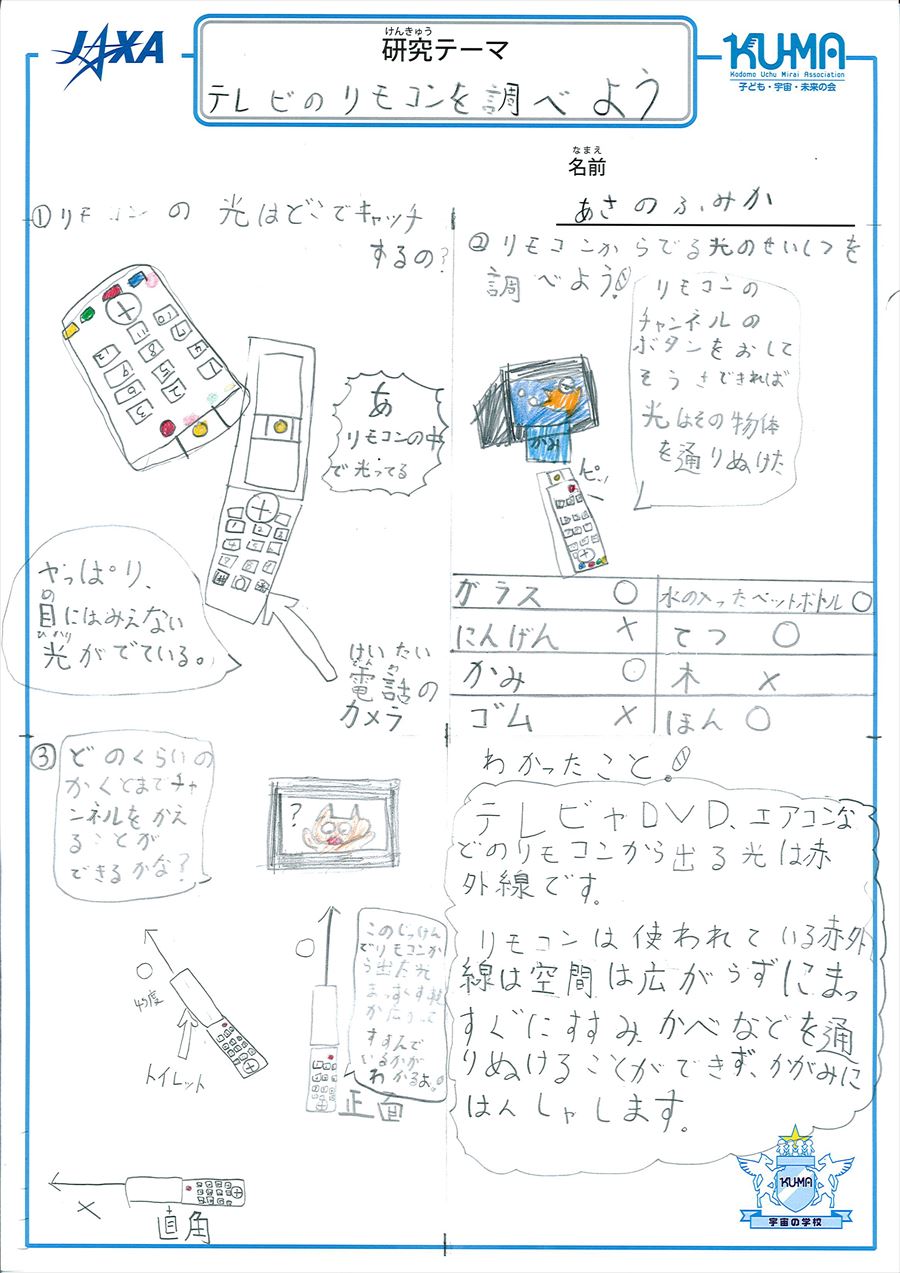 JAXA
けんきゅう
研究テーマ
テレビのリモコンを調べよう
KU-MA
Kodomo Uchu Mirai Association
子ども・宇宙・未来の会
なまえ
名前
あさのふみか
①リモコンの光はどこでキャッチ
するの?
あ
リモコンの中
で光ってる
やっぱり、
目にはみえない
の
ひかり
光がでている。
けいたい
でん わ
電話の
カメラ
②リモコンからでる光のせいしつを
調べよう!
リモコンの
チャンネルの
ボタンをおして
そうさできれば
光はその物体
を通りぬけた
かみ
ピッ
ガラス ○ 水の入ったペットボトル ○
にんげん × てつ ○
かみ ○ 木 ×
ゴム × ほん ○
③
どのくらいの
かくどまでチャ
ンネルをかえ
ることが
できるかな?
?
○
45度
トイレット
○
このじっけん
でリモコンか
ら出た光
まっすぐす
か広がって
すすんで
いるかが
わかるよ。
正面
×
直角
わかったこと!
テレビやDVD、エアコンな
どのリモコンから出る光は赤
外線です。
リモコンは使われている赤外
線は空間は広がらずにまっ
すぐにすすみ、かべなどを通
りぬけることができず、かがみに
はんしゃします。
KU-MA
宇宙の学校